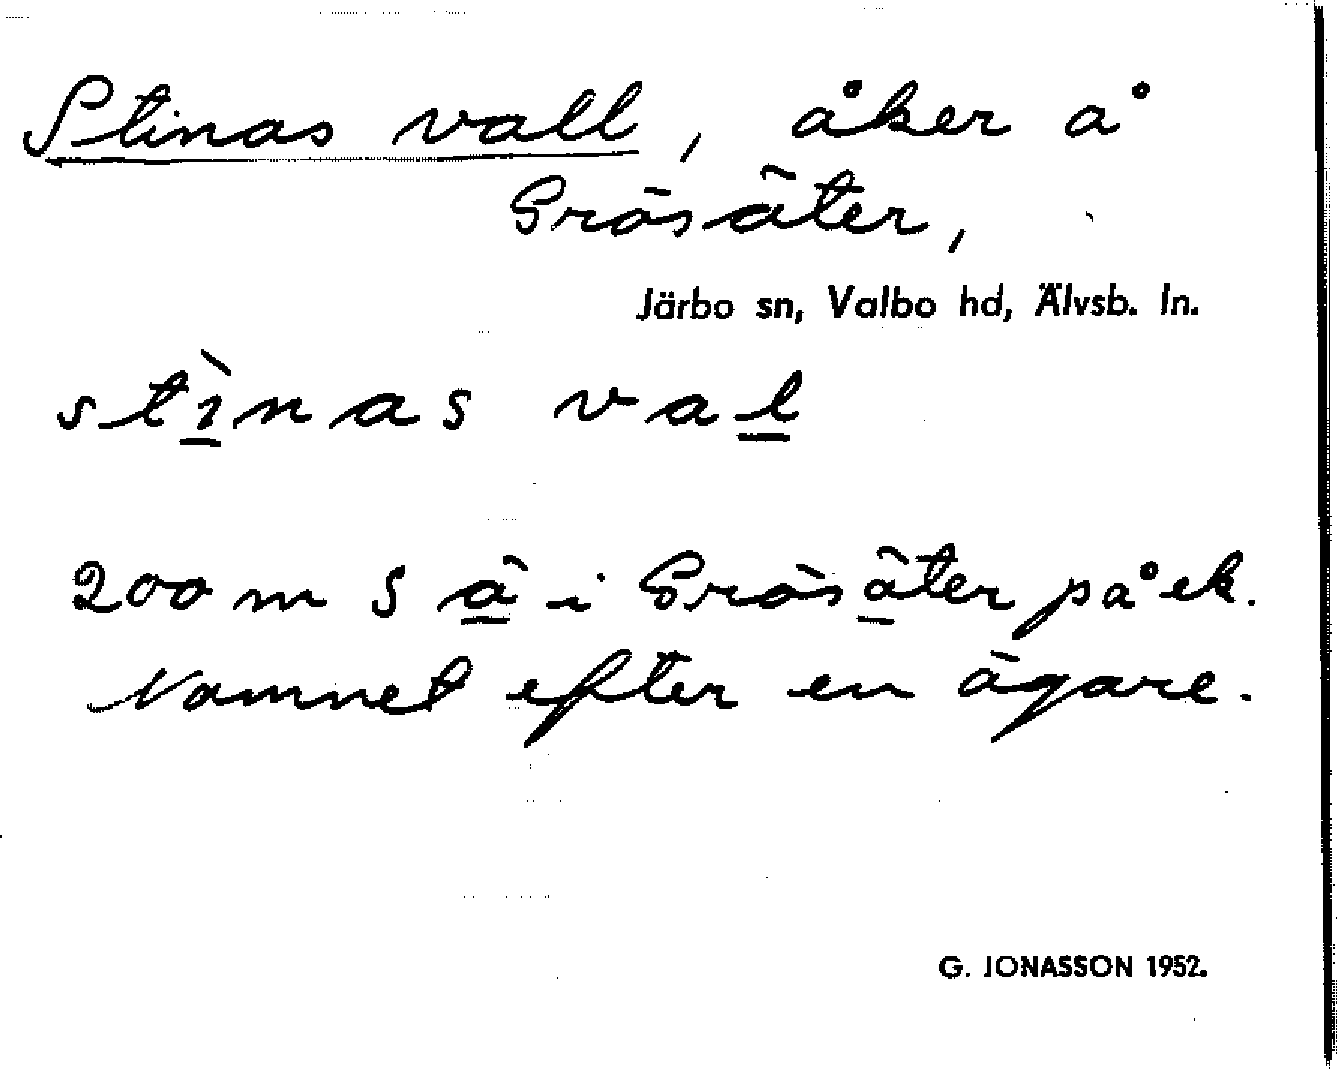 Stinas vall, åker å
Grösäter,
Järbo sn, Valbo hd, Älvsb. ln.
stìnas val
200 m S ä i Grösäter på ek.
Namnet efter en ägare.
G. JONASSON 1952.